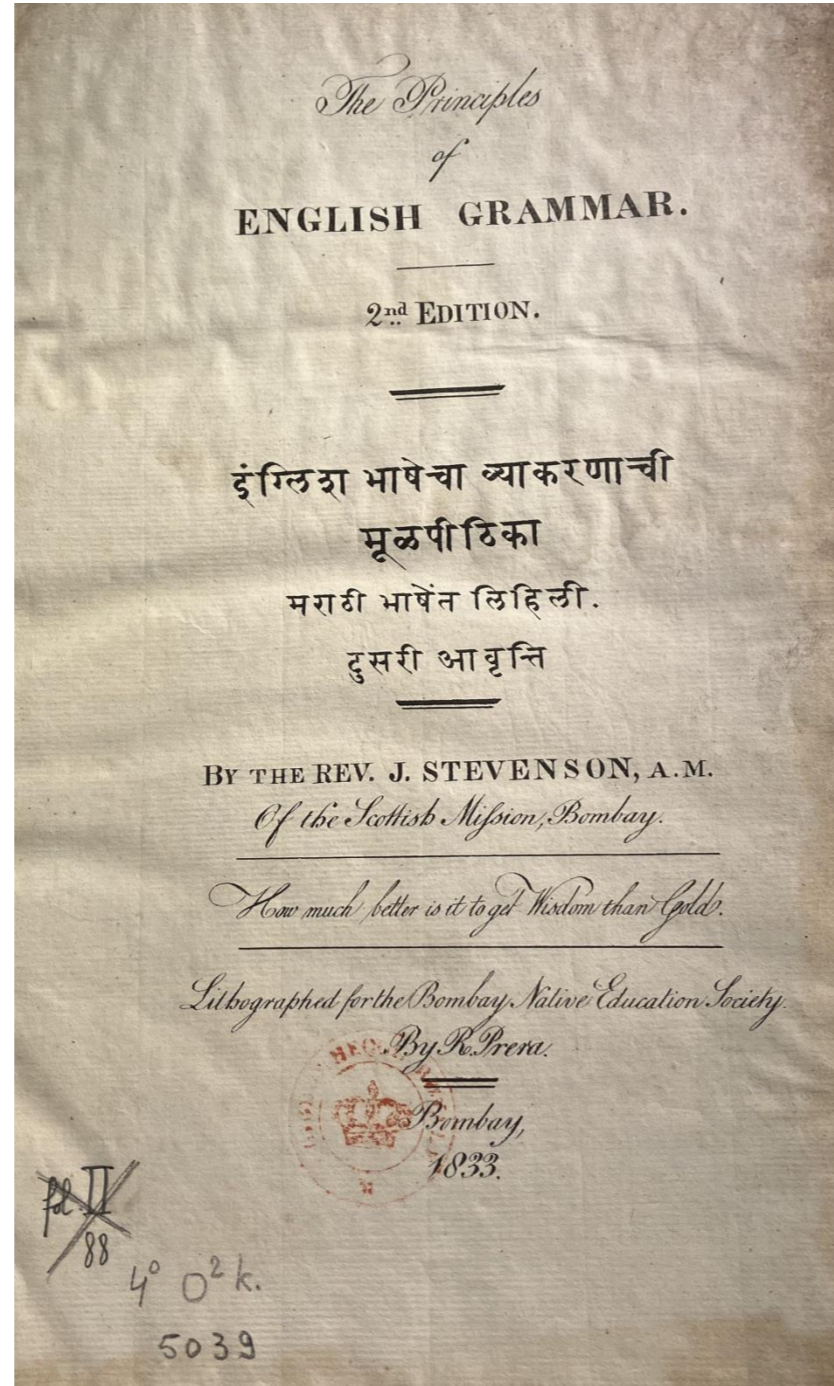 The Principles
of
ENGLISH GRAMMAR.
2nd EDITION.
इंग्लिश भाषेचा व्याकरणाची
मूळपीठिका
मराठी भाषेंत लिहिली.
दुसरी आवृत्ति
BY THE REV. J. STEVENSON, A.M.
Of the Scottish Miſsion, Bombay.
How much better is it to get Wisdom than Gold.
Lithographed for the Bombay Native Education Society.
By R. Prera.
Bombay,
1833.
fol. II
88
4° O² k.
5039